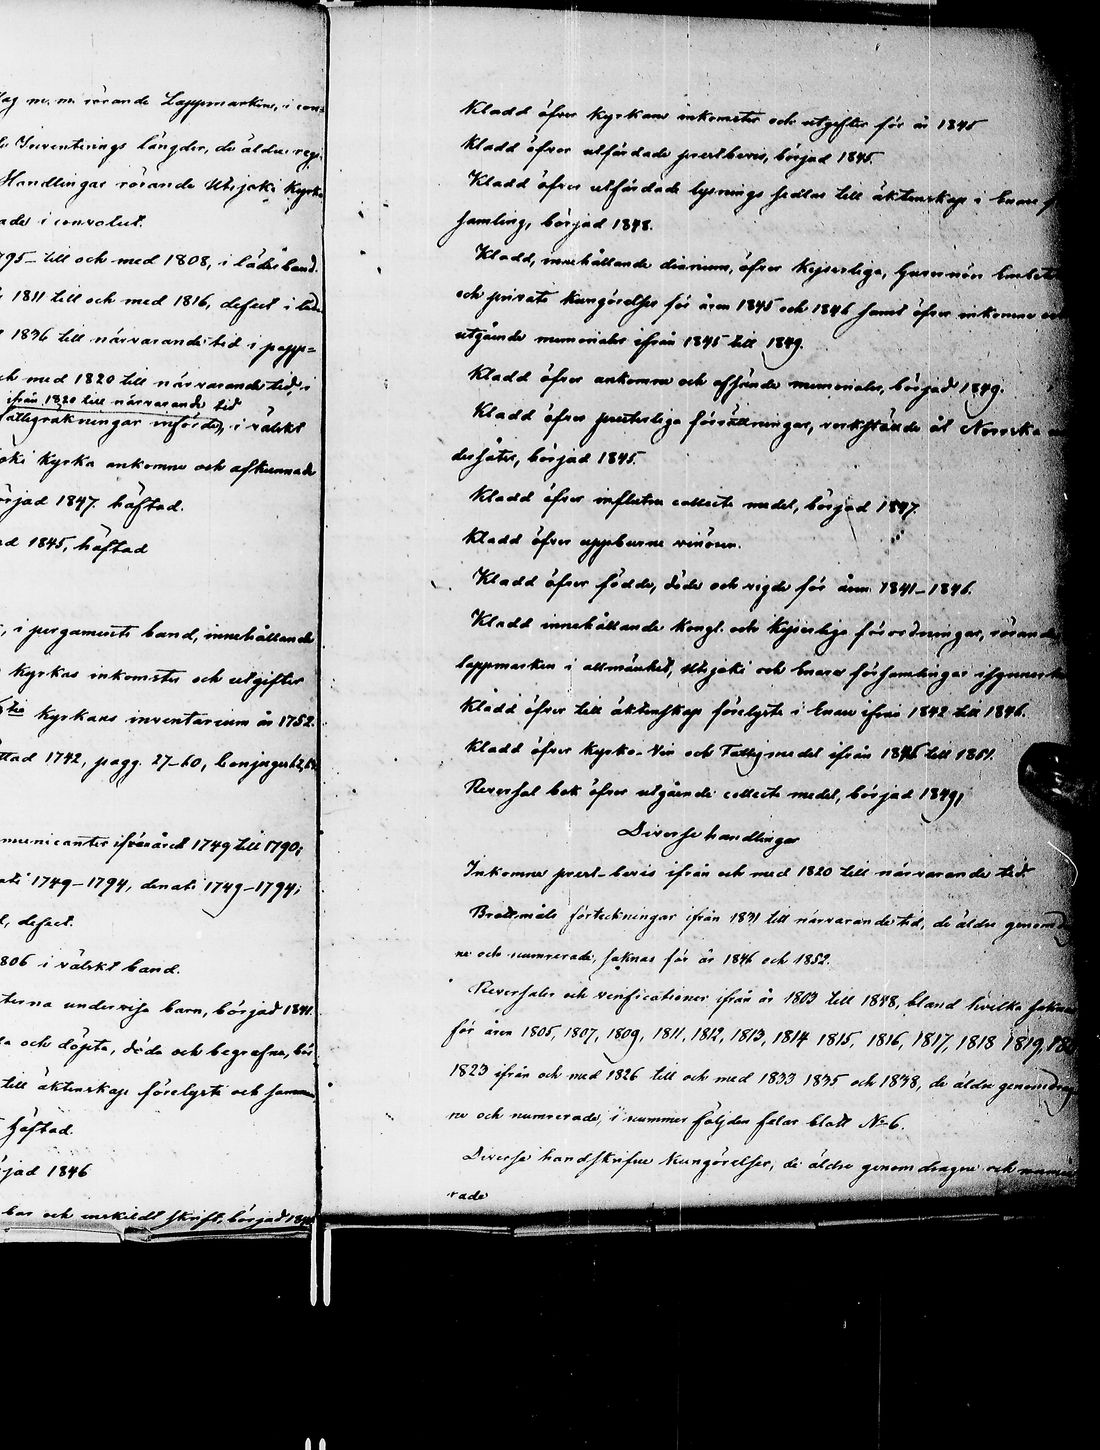 m. m. rörande Lappmarken, i
Inventerings längder, de äldre
Handlingar rörande Utsjoki Kyrka
i convolut.
795 till och med 1808, i läderband.
1811 till och med 1816, defect i
1836 till närvarande tid i papp=
med 1820 till närvarande tid, i
ifrån 1820 till närvarande tid
införde, i
Kyrka ankomne och afkunnade
1847. häftad.
1845, häftad
i pergaments band, innehållande
Kyrkas inkomster och utgifter
Kyrkans inventarium år 1752.
1742, pagg. 27-60,
ifrån året 1749 till 1790;
1749-1794, denati 1749-1794;
defect.
806 i band.
undervisa barn, börjad 1841.
och döpta, döda och begrafna,
till äktenskap förelyste och
häftad.
1846
och enskildt skrift, börjad
Kladd öfver Kyrkans inkomster och utgifter för år 1845
Kladd öfver utfärdade prestbevis, börjad 1845.
Kladd öfver utfärdade lysnings sedlar till äktenskap i Enare
samling, börjad 1848.
Kladd, innehållande diarium, öfver Kejserliga, Guvernörs Embets
och private Kungörelser för åren 1845 och 1846 samt öfver inkomne
utgående memorialer ifrån 1845 till 1849.
Kladd öfver ankomne och affände memorialer, börjad 1849.
Kladd öfver presterliga förrättningar, verkställde åt Norrska
börjad 1845.
Kladd öfver influtne collecte medel, börjad 1847.
Kladd öfver uppburne
Kladd öfver födde, döde och vigde för åren 1841-1846.
Kladd innehållande Kongl. och Kejserliga förordningar, rörande
lappmarken i allmänhet, Utsjoki och Enare församlingar
Kladd öfver till äktenskap förelyste i Enare ifrån 1842 till 1846.
Kladd öfver Kyrko- Vin och Fattigmedel ifrån 1846 till 1851.
Reversal bok öfver utgående collecte medel, börjad 1849,
Diverse handlingar
Inkomne prest-bevis ifrån och med 1820 till närvarande tid
Brottmåls förteckningar ifrån 1831 till närvarande tid, de äldre
ne och numrerade, saknas för år 1846 och 1852.
Reversaler och verificationer ifrån år 1803 till 1848, bland hvilka
för åren 1805, 1807, 1809, 1811, 1812, 1813, 1814 1815, 1816, 1817, 1818 1819,
1823 ifrån och med 1826 till och med 1833 1835 och 1838, de äldre
ne och numrerade, i nummer följden felar blott No 6.
Diverse handskrifne Kungörelser, de äldre genomdragne och
rade